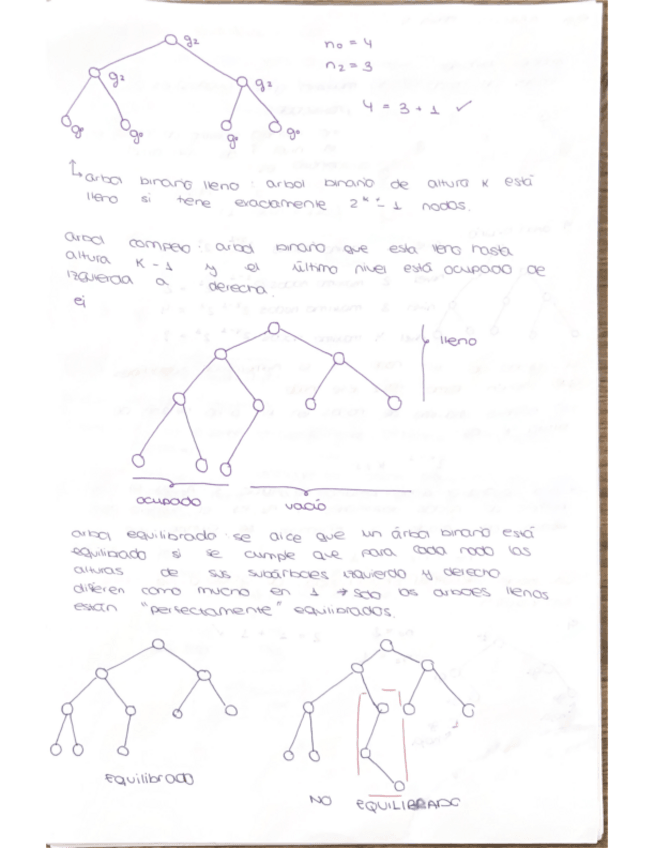 g2
n0 = 4
g2
g2
n2 = 3
4 = 3 + 1 ✓
g0
g0
g0
g0
árbol binario lleno : árbol binario de altura k está
lleno si tiene exactamente 2^k - 1 nodos.
árbol completo: árbol binario que esta lleno hasta
altura K - 1 y el último nivel está ocupado de
izquierda a derecha.
ej
lleno
ocupado
vacío
árbol equilibrado: se dice que un árbol binario está
equilibrado si se cumple que para cada nodo las
alturas de sus subárboles izquierdo y derecho
difieren como mucho en 1 → sólo los árboles llenos
están "perfectamente" equilibrados.
equilibrado
NO EQUILIBRADO